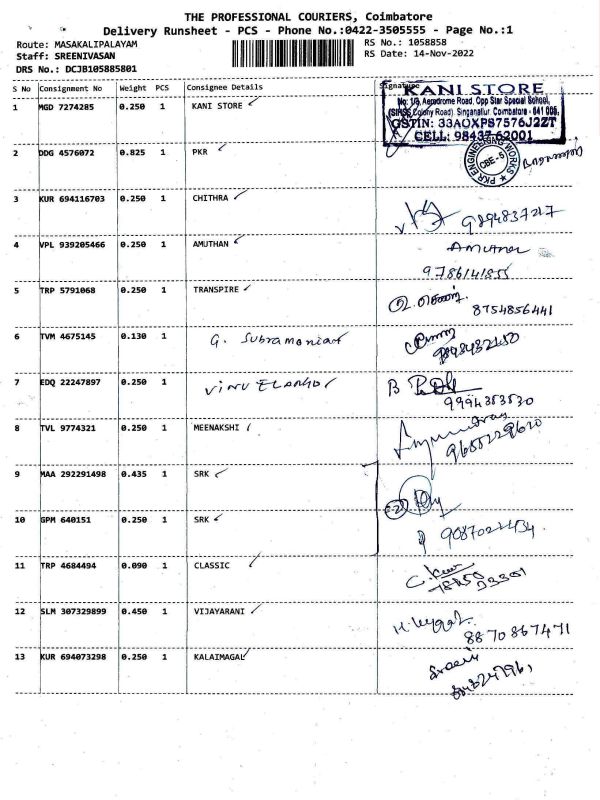 THE PROFESSIONAL COURIERS, Coimbatore
Delivery Runsheet - PCS - Phone No.:0422-3505555 - Page No.:1
Route: MASAKALIPALAYAM
RS No.: 1058858
Staff: SREENIVASAN
RS Date: 14-Nov-2022
DRS No.: DCJB105885801
S No Consignment No Weight PCS Consignee Details Signature
1 MGD 7274285 0.250 1 KANI STORE
KANI STORE
No: 1/9, Aerodrome Road, Opp Star Special School,
(SIHS Colony Road), Singanallur, Coimbatore - 641 005.
GSTIN: 33AOXPS7576J2ZT
CELL: 98437 62001
2 DDG 4576072 0.825 1 PKR
PKR ENGINEERING WORKS
CBE-5
3 KUR 694116703 0.250 1 CHITHRA
9894837217
4 VPL 939205466 0.250 1 AMUTHAN
9786141855
5 TRP 5791068 0.250 1 TRANSPIRE
8754856441
6 TVM 4675145 0.130 1 G. Subramanian
7 EDQ 22247897 0.250 1
9994353530
8 TVL 9774321 0.250 1 MEENAKSHI
9655229620
9 MAA 292291498 0.435 1 SRK
10 GPM 640151 0.250 1 SRK
11 TRP 4684494 0.090 1 CLASSIC
12 SLM 307329899 0.450 1 VIJAYARANI
8870867471
13 KUR 694073298 0.250 1 KALAIMAGAL